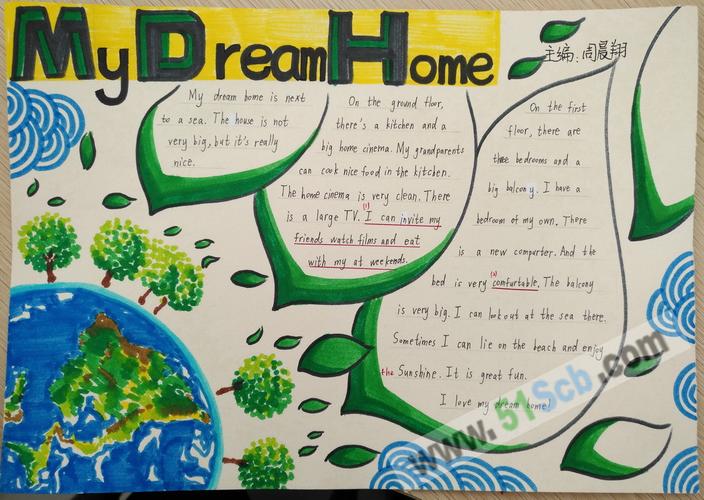 My Dream Home
主编:周晨翔
My dream home is next
to a sea. The house is not
very big, but it's really
nice.
On the ground floor,
there's a kitchen and a
big home cinema. My grandparents
can cook nice food in the kitchen.
The home cinema is very clean. There
is a large TV. I can invite my
friends watch films and eat
with my at weekends.
(1)
On the first
floor, there are
three bedrooms and a
big balcony. I have a
bedroom of my own. There
is a new comparter. And the
bed is very comfurtable. The balcony
(2)
is very big. I can look out at the sea there.
Sometimes I can lie on the beach and enjoy
the Sunshine. It is great fun.
I love my dream home!
www.51Scb.com